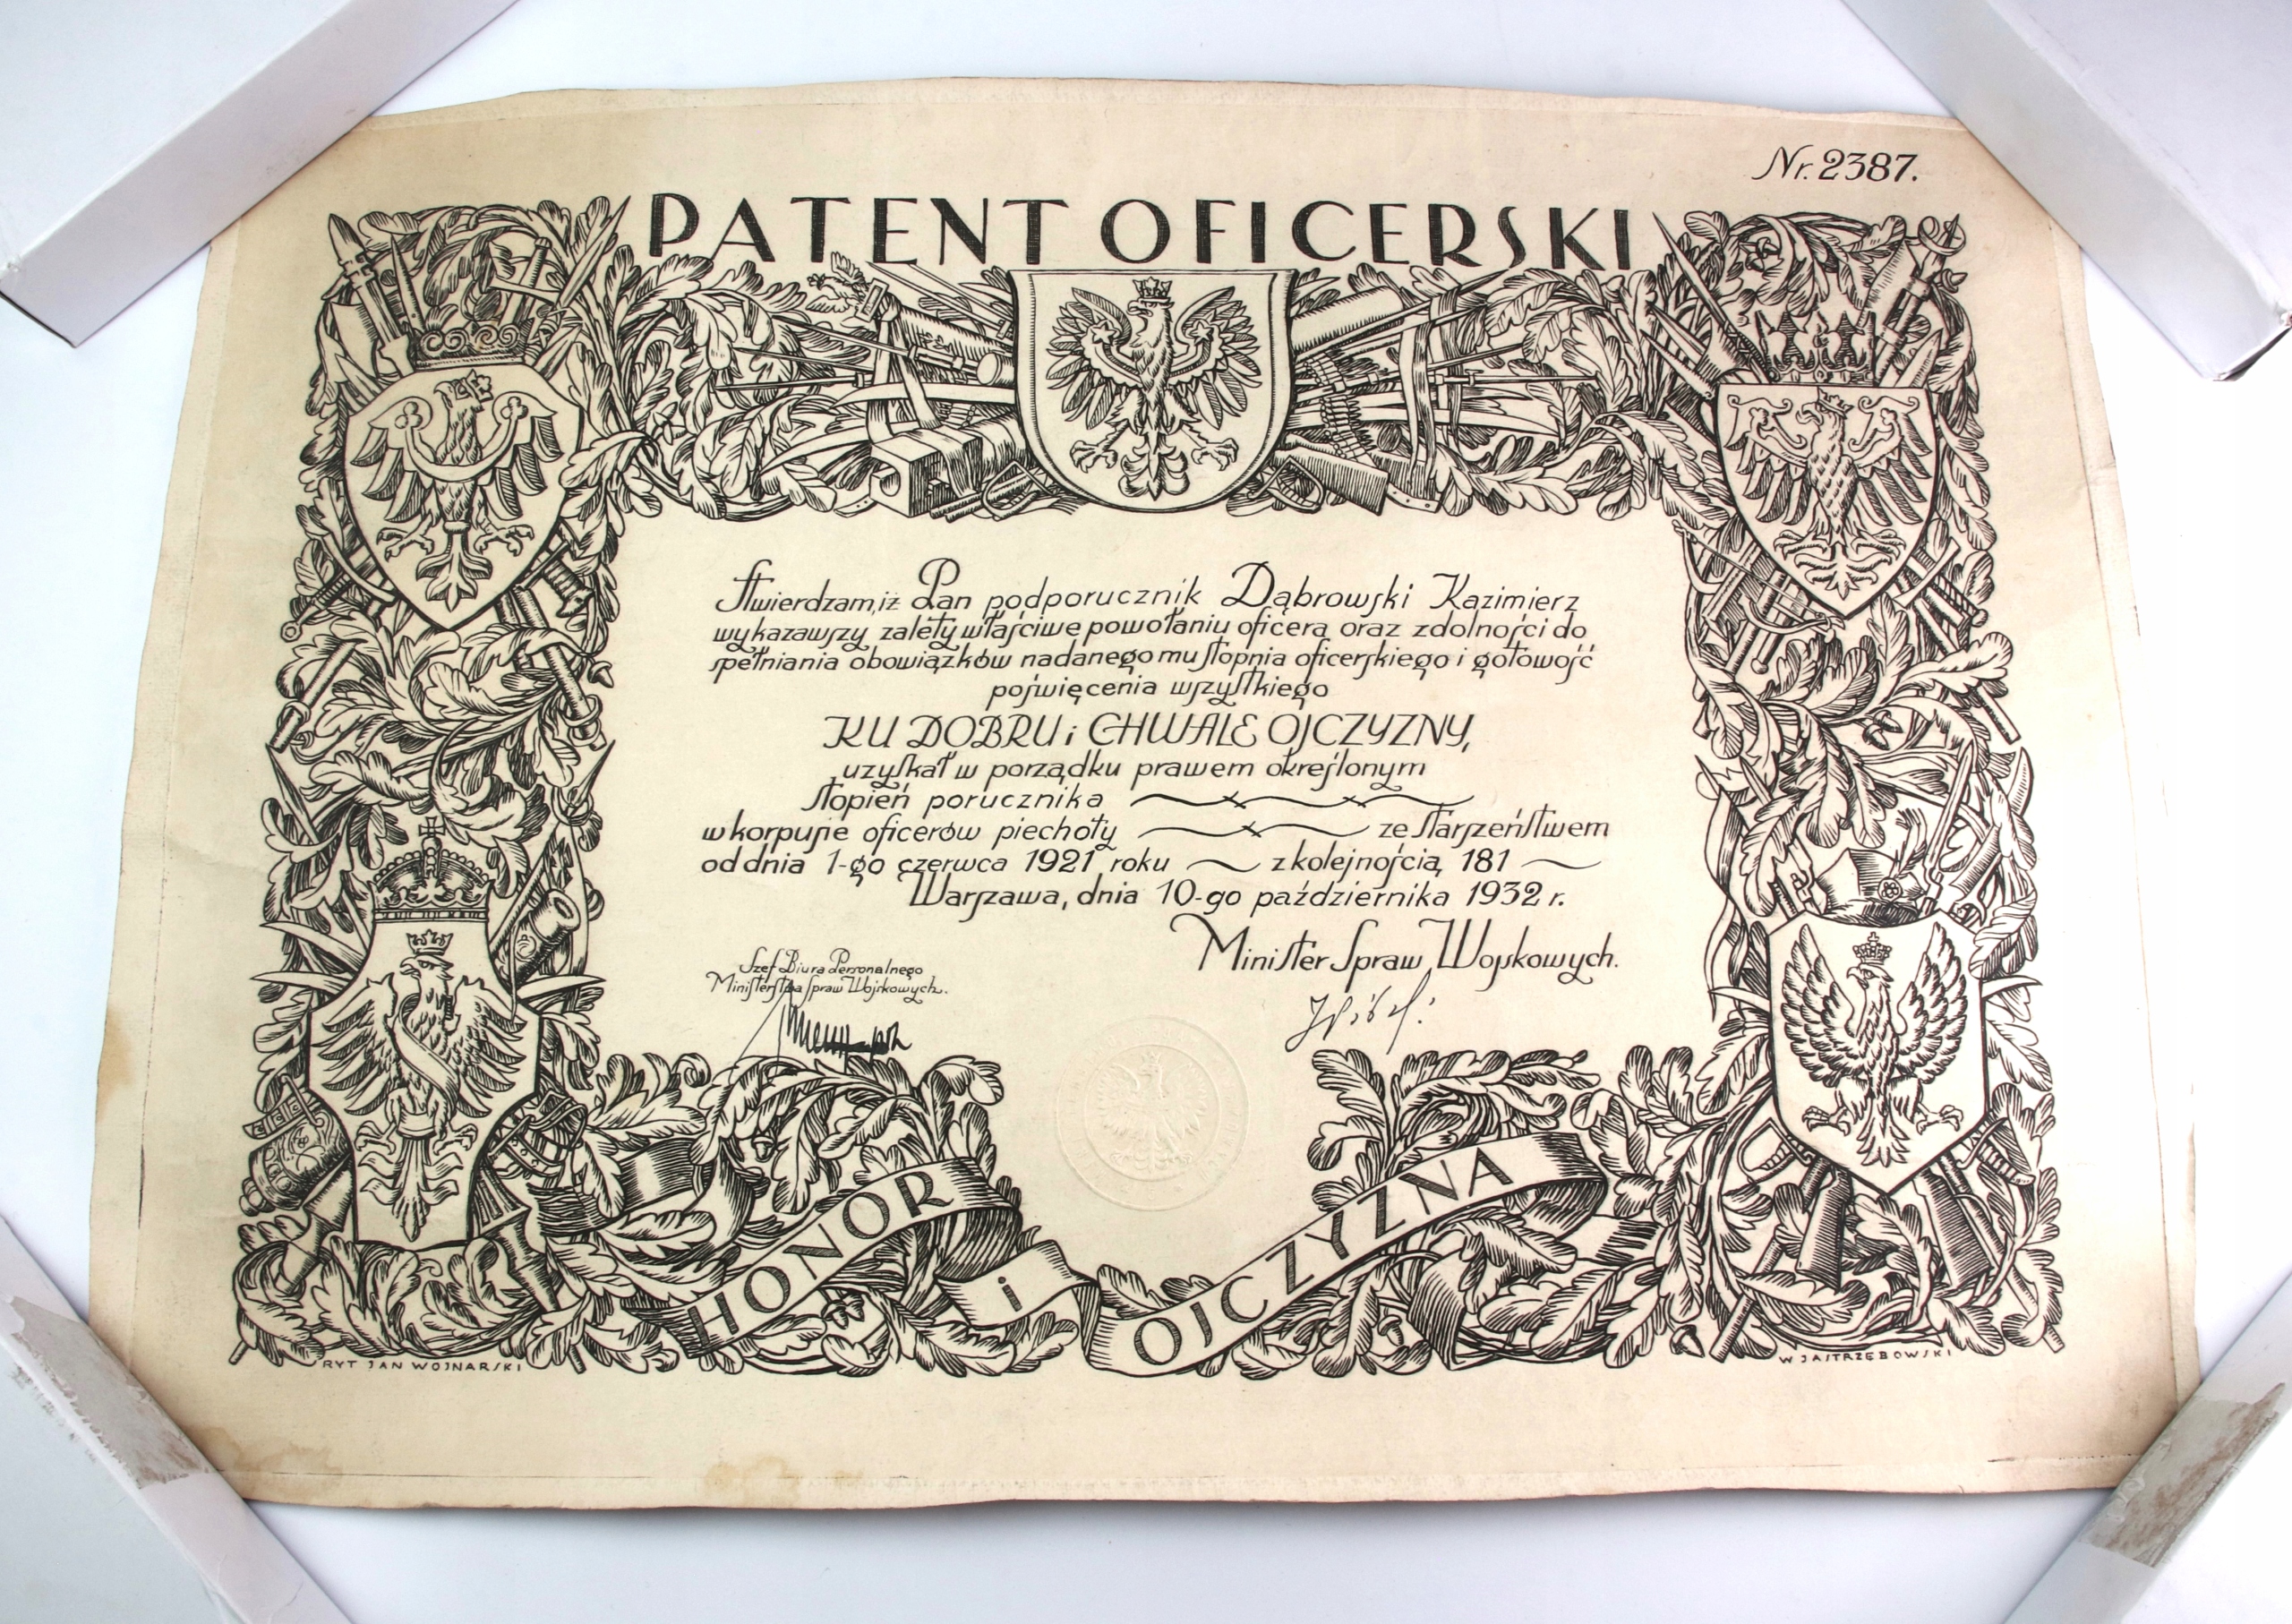 Nr. 2387.
PATENT OFICERSKI
Stwierdzam, iż Pan podporucznik Dąbrowski Kazimierz
wykazawszy zalety właściwe powołaniu oficera oraz zdolności do
spełniania obowiązków nadanego mu stopnia oficerskiego i gotowość
poświęcenia wszystkiego
KU DOBRU i CHWALE OJCZYZNY,
uzyskał w porządku prawem określonym
stopień porucznika
w korpusie oficerów piechoty ze starszeństwem
od dnia 1-go czerwca 1921 roku z kolejnością 181
Warszawa, dnia 10-go października 1932 r.
Minister Spraw Wojskowych.
Szef Biura Personalnego
Ministerstwa Spraw Wojskowych.
HONOR i OJCZYZNA
RYT JAN WOJNARSKI
W JASTRZĘBOWSKI